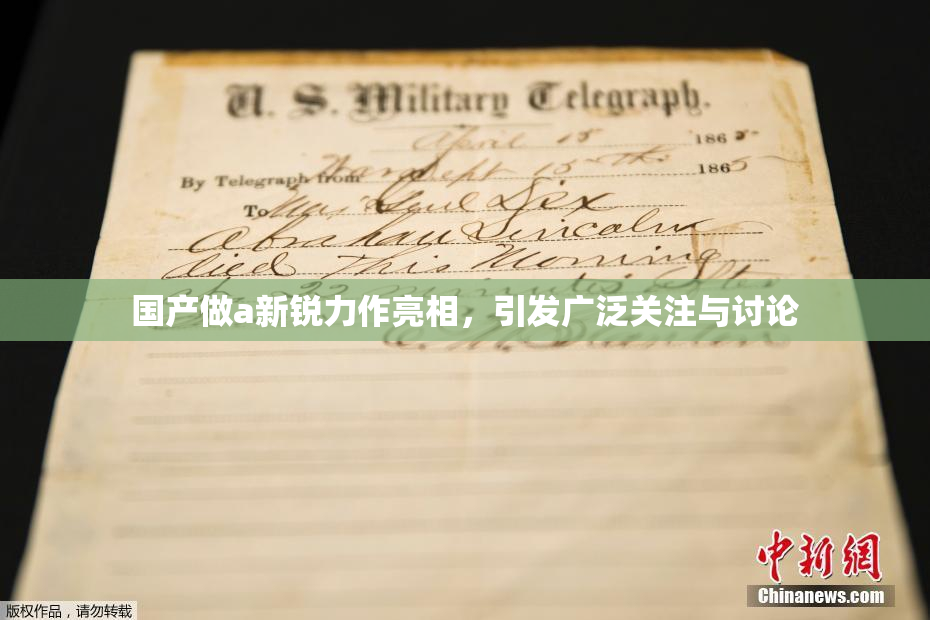 U. S. Military Telegraph.
April 15 1865
By Telegraph from War Dept 15th 1865
To Maj Genl Dix
Abraham Lincoln
died This Morning
22 minutes after
国产做a新锐力作亮相，引发广泛关注与讨论
E. M. Stanton
中新網
Chinanews.com
版权作品，请勿转载